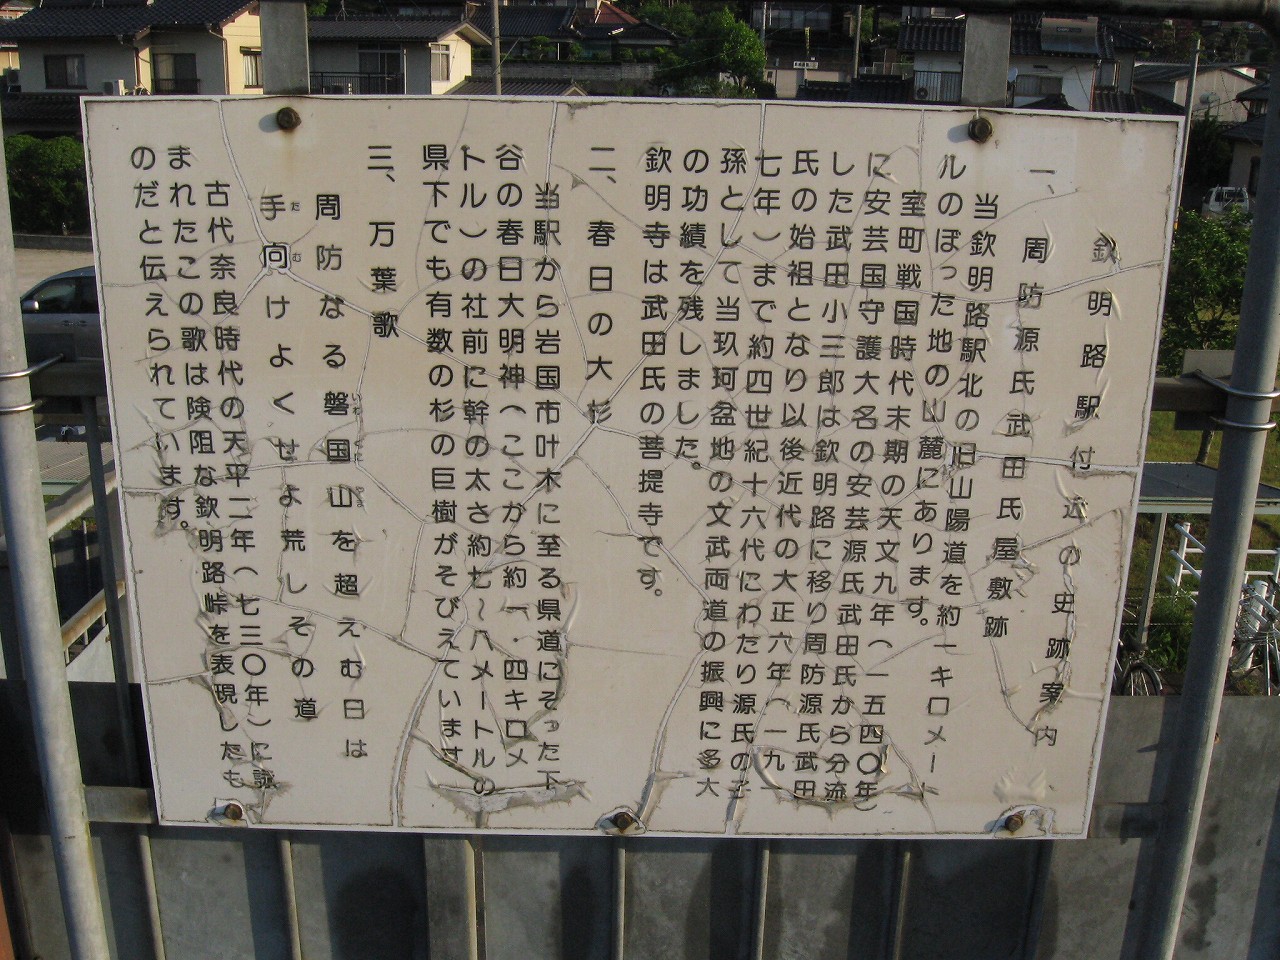 欽明路駅付近の史跡案内
一、周防源氏武田氏屋敷跡
当欽明路駅北の旧山陽道を約一キロメー
トルのぼった地の山麓にあります。
室町戦国時代末期の天文九年(一五四〇年)
に安芸国守護大名の安芸源氏武田氏から分流
した武田小三郎は欽明路に移り周防源氏武田
氏の始祖となり以後近代の大正六年(一九一
七年)まで約四世紀十六代にわたり源氏の子
孫として当玖珂盆地の文武両道の振興に多大
の功績を残しました。
欽明寺は武田氏の菩提寺です。
二、春日の大杉
当駅から岩国市叶木に至る県道にそった下
谷の春日大明神(ここから約一・四キロメ
トル)の社前に幹の太さ約七~八メートルの
県下でも有数の杉の巨樹がそびえています
三、万葉歌
周防なる磐国山を超えむ日は
手向けよくせよ荒しその道
古代奈良時代の天平二年(七三〇年)に詠
まれたこの歌は険阻な欽明路峠を表現したも
のだと伝えられています。